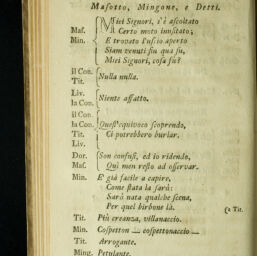 Masotto, Mingone, e Detti.
Miei Signori, s'è ascoltato
Mas. Certo moto inusitato;
Min. E trovato l'uscio aperto
Siam venuti fin qua sù,
Miei Signori, cosa fù?
il Con.
Tit. Nulla nulla.
Liv.
la Con. Niente affatto.
il Con.
la Con. Quest'equivoco scoprendo,
Tit. Ci potrebbero burlar.
Liv.
Dor. Son confusi, ed io ridendo,
Mas. Quì men resto ad osservar.
Min. E' già facile a capire,
Come stata la sarà:
Sarà nata qualche scena,
Per quel birbone là. (a Tit.
Tit. Più creanza, villanaccio.
Min. Cospetton — cospettonaccio —
Tit. Arrogante.
Ming. Petulante.